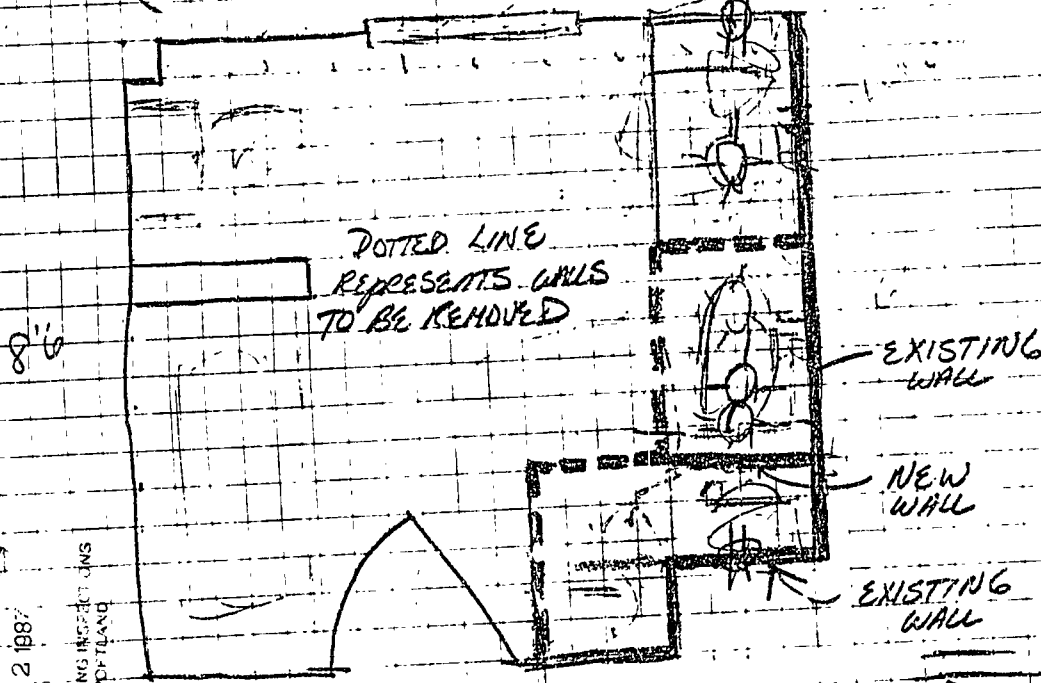 DOTTED LINE
REPRESENTS WALLS
TO BE REMOVED
8'6"
EXISTING
WALL
NEW
WALL
EXISTING
WALL
2 1987
NG INSPECTIONS
PORTLAND